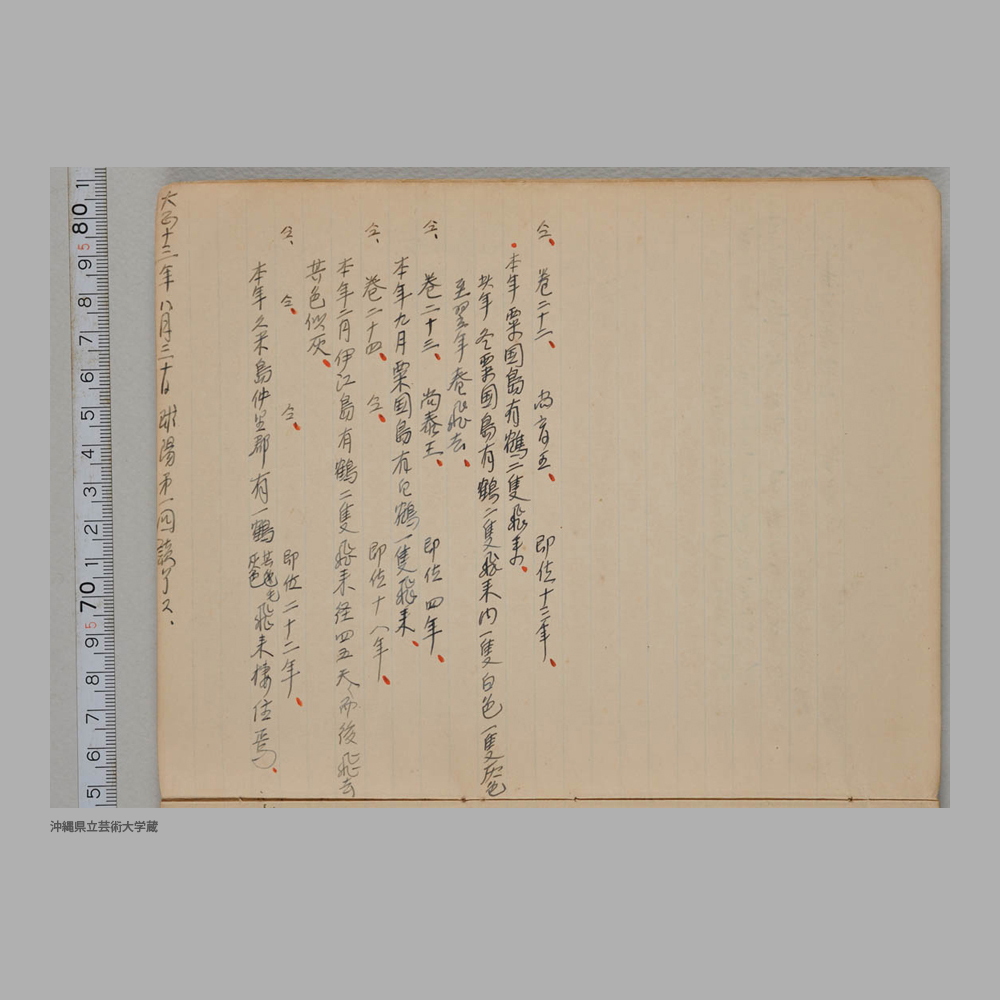 仝、 巻二十二、 尚育王、 即位十三年、
本年粟国島有鶴二隻飛来、
此年冬粟国島有鶴二隻飛来内一隻白色一隻灰色
至翌年春飛去、
仝、 巻二十三、 尚泰王、 即位四年、
本年九月粟国島有白鶴一隻飛来、
仝、 巻二十四、 仝、 即位十八年、
本年二月伊江島有鶴二隻飛来経四五天而後飛去
其色似灰、
仝、 仝、 仝、 即位二十二年、
本年久米島仲里郡有一鶴其色毛灰色飛来棲住焉、
大正十三年八月三十日球陽第一回読了ス、
沖縄県立芸術大学蔵
8 7 6 5 4 3 2 1 70 9 8 7 6 5